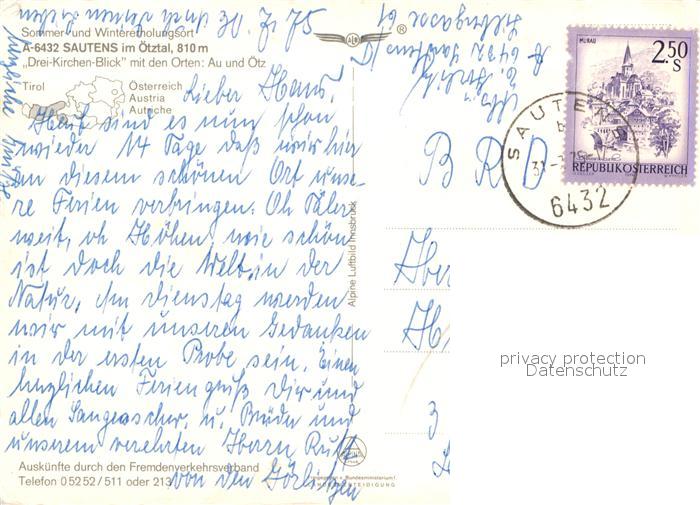 30.7.75
Sommer- und Wintererholungsort
A-6432 SAUTENS im Ötztal, 810 m
„Drei-Kirchen-Blick" mit den Orten: Au und Ötz
Tirol
Österreich
Austria
Autriche
Lieber Hans,
Heut sind es nun schon
wieder 14 Tage daß wir hier
an diesem schönen Ort unse-
re Ferien verbringen. Oh Täler
weit, oh Höhen, wie schön
ist doch die Welt, in der
Natur, Am Dienstag werden
wir mit unseren Gedanken
in der ersten Probe sein. Einen
herzlichen Feriengruß Dir und
allen Sangesschw. u. Brüder und
unserem verehrten Herrn
von den
Auskünfte durch den Fremdenverkehrsverband
Telefon 0 52 52 / 511 oder 213
Alpine Luftbild Innsbruck
A 6432 Sautens
B R D
MURAU
2.50
S
REPUBLIK ÖSTERREICH
SAUTENS
6432
Her
H
3
privacy protection
Datenschutz